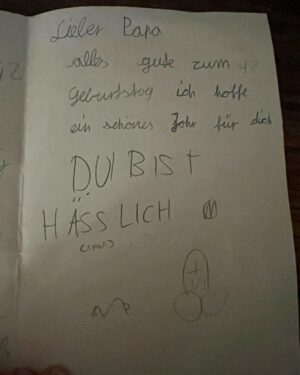 Lieber Papa
alles gute zum 42
Geburtstag ich hoffe
ein schönes Jahr für dich
DU BIST
HÄSSLICH